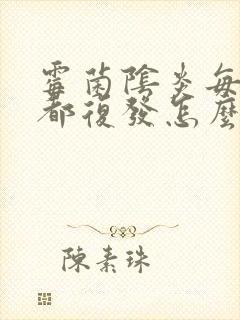 霉菌陰炎每
都復發怎麼
陳素珠